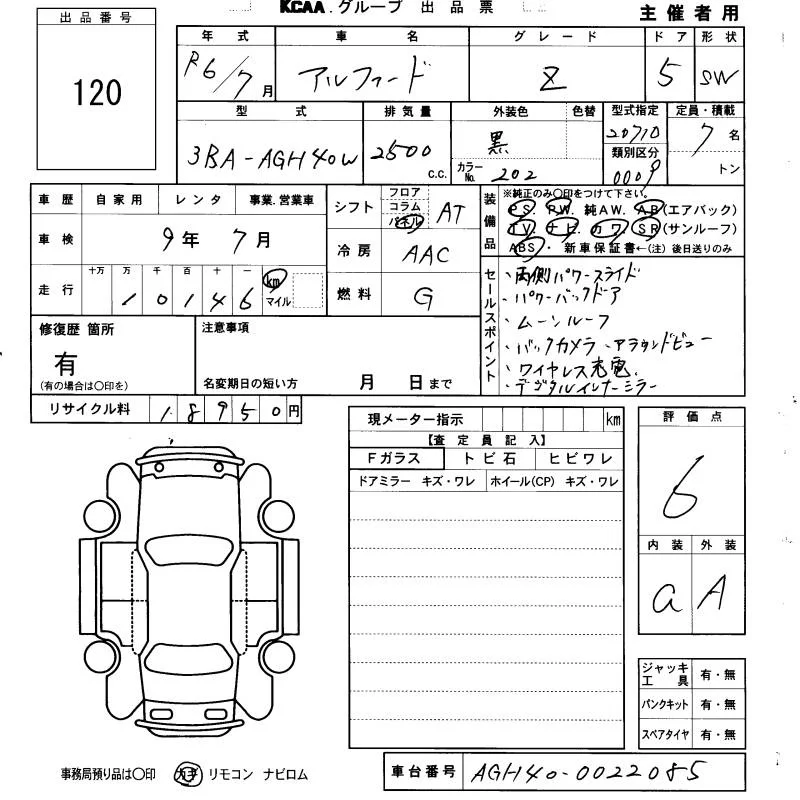 KCAA グループ 出品票
主催者用
出品番号
120
年式 車名 グレード ドア 形状
R6/7月 アルファード Z 5 SW
型式 排気量 外装色 色替 型式指定 定員・積載
3BA-AGH40W 2500 c.c. 黒 20710 7名
カラーNo. 202 類別区分 0009 トン
車歴 自家用 レンタ 事業.営業車
車検 9年 7月
走行 十万 万 千 百 十 一
1 0 1 4 6 km マイル
シフト フロア コラム パネル AT
冷房 AAC
燃料 G
装備品 ※純正のみ〇印をつけて下さい。
PS. PW. 純AW. AB(エアバック)
TV. ナビ. カワ. SR(サンルーフ)
ABS・ 新車保証書←(注) 後日送りのみ
セールスポイント
・両側パワースライド
・パワーバックドア
・ムーンルーフ
・バックカメラ、アラウンドビュー
・ワイヤレス充電.
・デジタルインナーミラー
修復歴 箇所
有
(有の場合は〇印を)
注意事項
名変期日の短い方 月 日まで
リサイクル料 1 8 9 5 0 円
現メーター指示 km
【査定員記入】
Fガラス トビ石 ヒビワレ
ドアミラー キズ・ワレ ホイール(CP) キズ・ワレ
評価点
6
内装 外装
a A
ジャッキ工具 有・無
パンクキット 有・無
スペアタイヤ 有・無
事務局預り品は〇印 カギ リモコン ナビロム
車台番号 AGH40-0022085